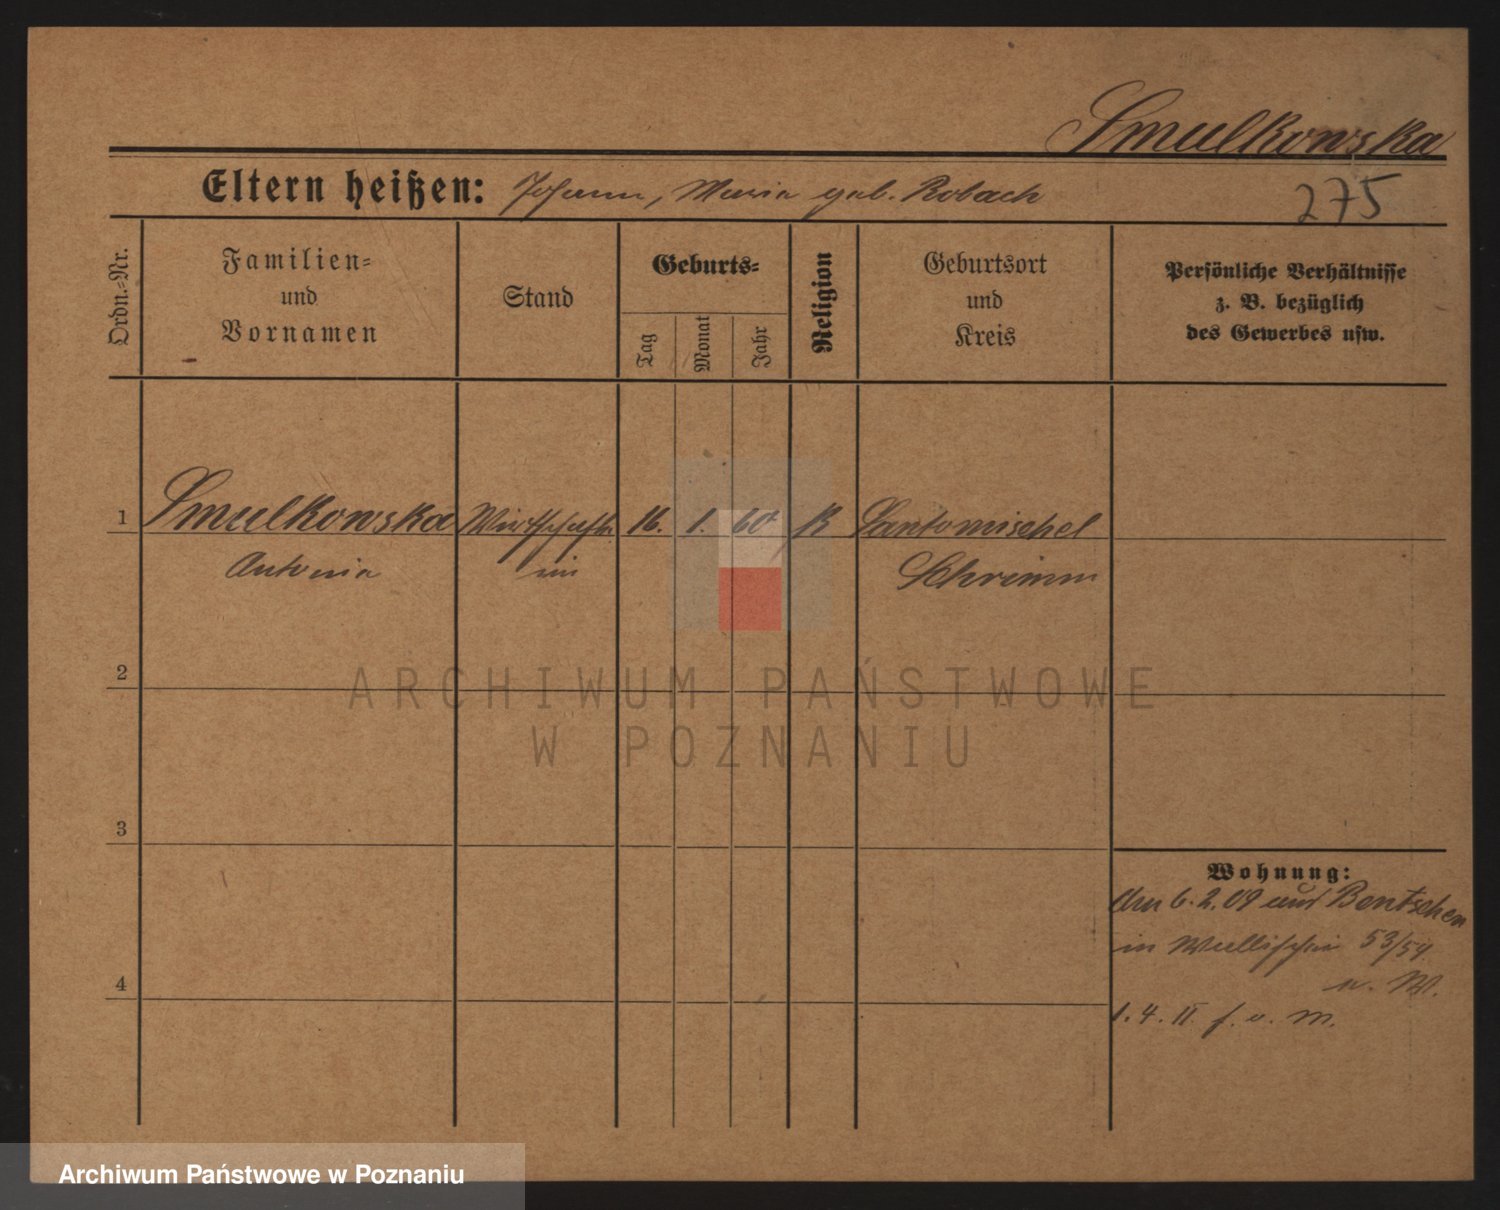 Smulkowska
Eltern heißen: Johann, Maria geb. Robach
275
Ordn.-Nr.
Familien-
und
Vornamen
Stand
Geburts-
Tag
Monat
Jahr
Religion
Geburtsort
und
Kreis
Persönliche Verhältnisse
z. B. bezüglich
des Gewerbes usw.
1 Smulkowska Wirtschafts 16. 1. 60 K Santomischel
Antonia in Schrimm
2
3
4
Wohnung:
Am 6.2.09 aus Bentschen
in 53/54
1.4.11 f. v. M.
ARCHIWUM PAŃSTWOWE
W POZNANIU
Archiwum Państwowe w Poznaniu